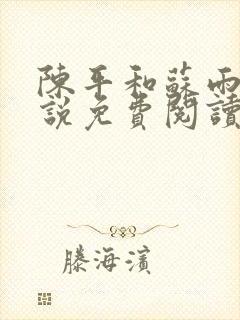 陳平和蘇雨
說免費閱讀
滕海濱